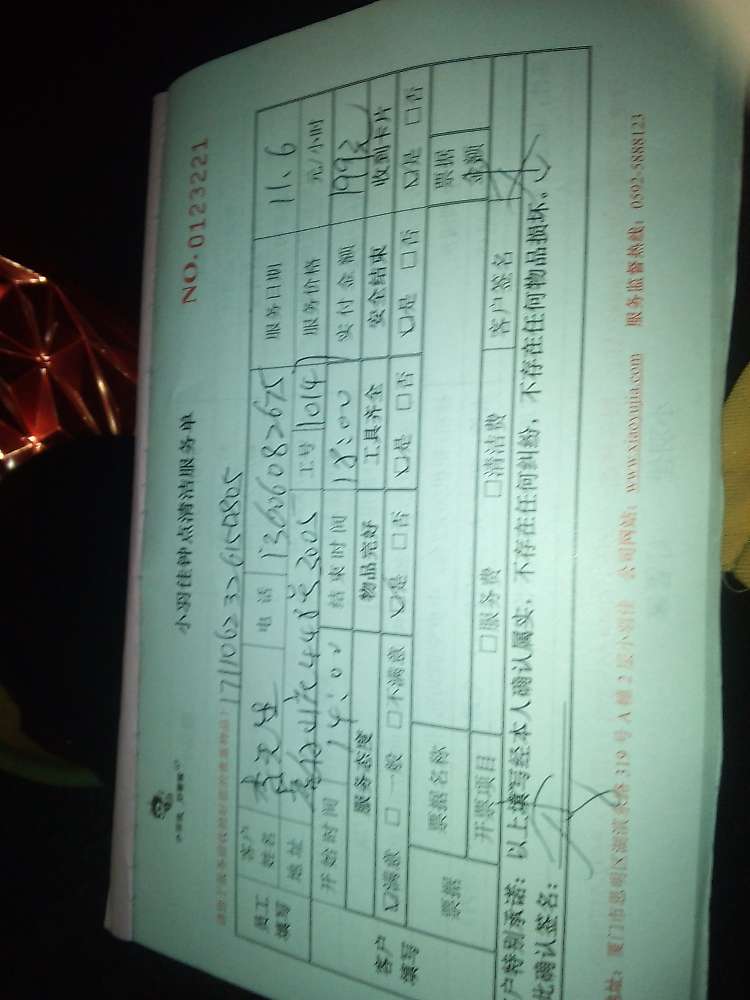 小羽佳钟点清洁服务单
NO.0123221
1711062326150805
员工填写
客户姓名 电话 13606082675 服务日期 11.6
地址 448号2005 工号 1014 服务价格 元/小时
开始时间 14:00 结束时间 18:00 实付金额 199元
客户填写
服务态度 物品完好 工具齐全 安全结束 收到卡片
☑满意 □一般 □不满意 ☑是 □否 ☑是 □否 ☑是 □否 ☑是 □否
票据 票据名称 票据金额
开票项目 □服务费 □清洁费 客户签名
户特别承诺：以上填写经本人确认属实，不存在任何纠纷，不存在任何物品损坏。
此确认签名：
地址：厦门市思明区湖滨东路319号A幢2层小羽佳 公司网站：www.xiaoyujia.com 服务监督热线：0592-5888123